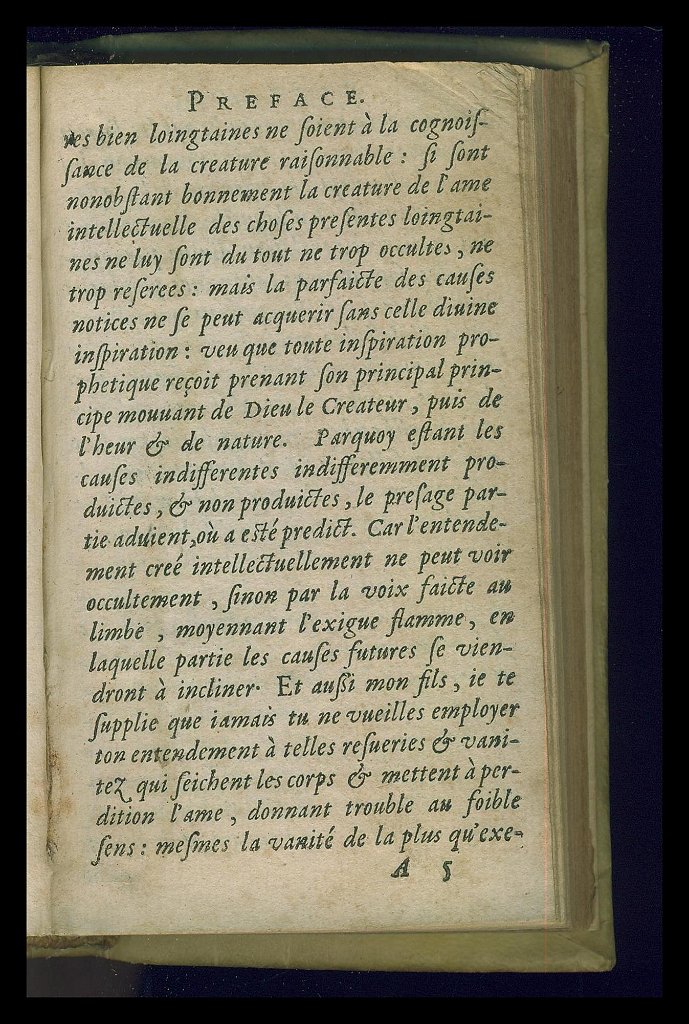 PREFACE.
res bien loingtaines ne ſoient à la cognoiſ-
ſance de la creature raiſonnable : ſi ſont
nonobſtant bonnement la creature de l'ame
intellectuelle des choſes preſentes loingtai-
nes ne luy ſont du tout ne trop occultes, ne
trop reſerees : mais la parfaicte des cauſes
notices ne ſe peut acquerir ſans celle diuine
inſpiration : veu que toute inſpiration pro-
phetique reçoit prenant ſon principal prin-
cipe mouuant de Dieu le Createur, puis de
l'heur & de nature. Parquoy eſtant les
cauſes indifferentes indifferemment pro-
duictes, & non produictes, le preſage par-
tie aduient, où a eſté predict. Car l'entende-
ment creé intellectuellement ne peut voir
occultement, ſinon par la voix faicte au
limbe, moyennant l'exigue flamme, en
laquelle partie les cauſes futures ſe vien-
dront à incliner. Et auſſi mon fils, ie te
ſupplie que iamais tu ne vueilles employer
ton entendement à telles reſueries & vani-
tez qui ſeichent les corps & mettent à per-
dition l'ame, donnant trouble au foible
ſens : meſmes la vanité de la plus qu'exe-
A 5